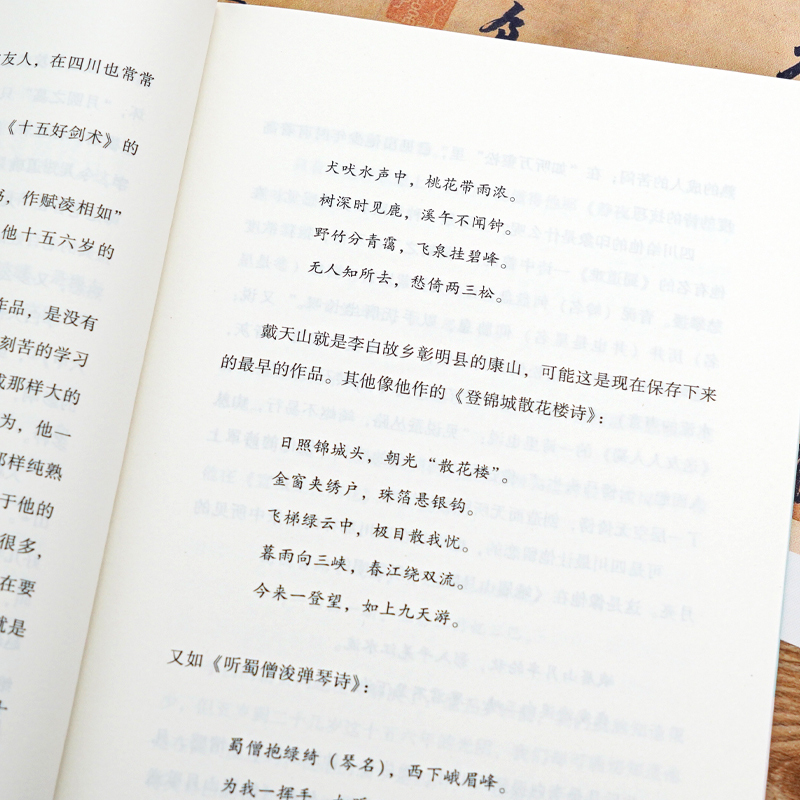 友人，在四川也常常
《十五好剑术》的
书，作赋凌相如”
他十五六岁的
作品，是没有
刻苦的学习
成那样大的
为，他一
那样纯熟
于他的
很多，
在要
就是
犬吠水声中，桃花带雨浓。
树深时见鹿，溪午不闻钟。
野竹分青霭，飞泉挂碧峰。
无人知所去，愁倚两三松。
戴天山就是李白故乡彰明县的康山，可能这是现在保存下来
的最早的作品。其他像他作的《登锦城散花楼诗》：
日照锦城头，朝光“散花楼”。
金窗夹绣户，珠箔悬银钩。
飞梯绿云中，极目散我忧。
暮雨向三峡，春江绕双流。
今来一登望，如上九天游。
又如《听蜀僧浚弹琴诗》：
蜀僧抱绿绮（琴名），西下峨眉峰。
为我一挥手，